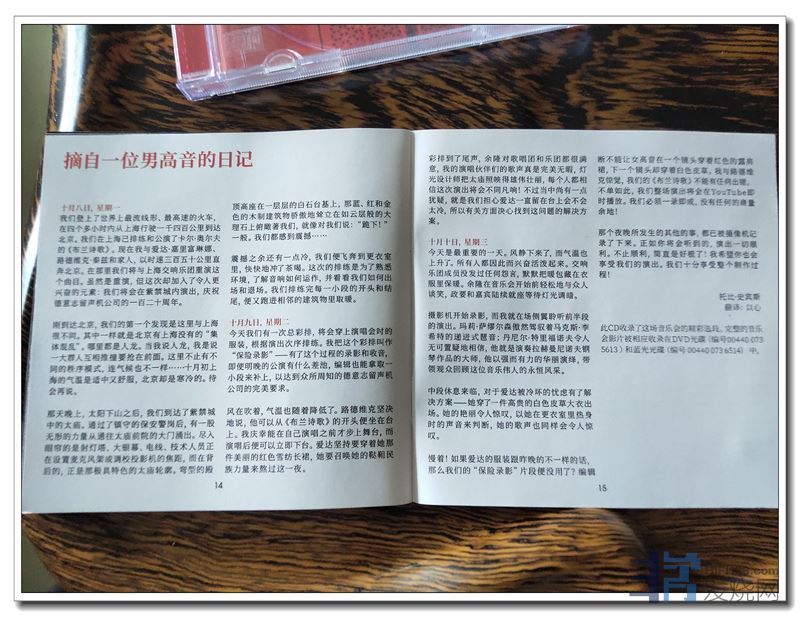 摘自一位男高音的日记
十月八日，星期一
我们登上了世界上最流线形、最高速的火车，
在四个多小时内从上海行驶一千四百公里到达
北京。我们在上海已排练和公演了卡尔·奥尔夫
的《布兰诗歌》。现在我与爱达·嘉里富琳娜、
路德维克·泰兹和家人，以时速三百五十公里直
奔北京。在那里我们将与上海交响乐团重演这
个曲目。虽然是重演，但这次却加入了令人更
兴奋的元素：我们将会在紫禁城内演出，庆祝
德意志留声机公司的一百二十周年。
刚到达北京，我们的第一个发现是这里与上海
很不同。其中一样就是北京有上海没有的“集
体混乱”，哪里都是人龙。当我说人龙，我是说
一大群人互相推撞要抢在前面。这里不止有不
同的秩序模式，连气候也不一样……十月初上
海的气温是适中又舒服，北京却是寒冷的。待
会再说。
那天晚上，太阳下山之后，我们到达了紫禁城
中的太庙。通过了镇守的保安警岗后，有一股
无形的力量从通往太庙前院的大门涌出。尽入
眼帘的是射灯塔、大银幕、电线、技术人员正
在设置麦克风架或调校投影机的焦距，而在背
后的，正是那极具特色的太庙轮廓。弯型的殿
顶高座在一层层的白石台基上，那蓝、红和金
色的木制建筑物骄傲地耸立在如云层般的大
理石上俯瞰著我们，就像对我们说：“跪下！”
一般。我们都感到震撼……
震撼之余还有一点冷，我们便飞奔到更衣室
里，快快地冲了茶喝。这次的排练是为了熟悉
环境，了解音响如何运作，并看看我们如何出
场和退场。我们排练完每一小段的开头和结
尾，便又跑进相邻的建筑物里取暖。
十月九日，星期二
今天我们有一次总彩排，将会穿上演唱会时的
服装，根据演出次序排练。我把这个彩排叫作
“保险录影”——有了这个过程的录影和收音，
即使明晚的公演有什么差池，编辑也能拿取一
小段来补上，以达到众所周知的德意志留声机
公司的完美要求。
风在吹着，气温也随着降低了。路德维克坚决
地说，他可以从《布兰诗歌》的开头便坐在台
上。我庆幸能在自己演唱之前才步上舞台，而
演唱后便可以立即下台。爱达坚持要穿着她那
件美丽的红色雪纺长裙，她要召唤她的鞑靼民
族力量来熬过这一夜。
14
彩排到了尾声，余隆对歌唱团和乐团都很满
意，我的演唱伙伴们的歌声真是完美无暇，灯
光设计师把太庙照映得雄伟壮丽，每个人都相
信这次演出将会不同凡响！不过当中尚有一点
犹疑，就是我们担心爱达一直留在台上会不会
太冷，所以有关方面决心找到这问题的解决方
案。
十月十日，星期三
今天是最重要的一天。风静下来了，而气温也
上升了。所有人都因此而兴奋活泼起来。交响
乐团成员没发过任何怨言，默默把暖包藏在衣
服里保暖。余隆在音乐会开始前轻松地与众人
谈笑，政要和嘉宾陆续就座等待灯光调暗。
摄影机开始录影，而我就在场侧翼聆听前半段
的演出。玛莉·萨缪尔森傲然驾驭着马克斯·李
希特的递进式琶音；丹尼尔·特里福诺夫令人
无可置疑地相信，他就是演奏拉赫曼尼诺夫钢
琴作品的大师，他以强而有力的华丽演绎，带
领观众回顾这位音乐伟人的永恒风采。
中段休息来临，对于爱达被冷坏的忧虑有了解
决方案——她穿了一件高贵的白色皮草大衣出
场。她的艳丽令人惊叹，以她在更衣室里热身
时的声音来判断，她的歌声也同样会令人惊
叹。
慢着！如果爱达的服装跟昨晚的不一样的话，
那么我们的“保险录影”片段便没用了？编辑
断不能让女高音在一个镜头穿着红色的露肩
裙，下一个镜头却穿着白色皮草。我与路德维
克惊觉，我们的《布兰诗歌》不能有任何出错。
不单如此，我们整场演出将会在YouTube即
时播放。我们必须一录即成，没有任何的商量
余地！
那个夜晚所发生的其他的事，都已被摄像机记
录了下来。正如你将会听到的，演出一切顺
利。不止顺利，简直是好极了！我希望你也会
享受我们的演出。我们十分享受整个制作过
程！
托比·史宾斯
翻译：以心
此CD收录了这场音乐会的精彩选段。完整的音乐
会影片被相应收录在DVD光碟（编号00440 073
5613）和蓝光光碟（编号00440 073 6514）中。
15
发烧网